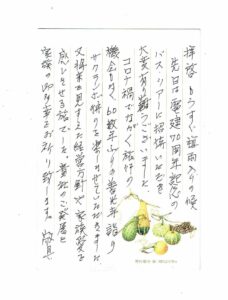 拝啓 もうすぐ梅雨入りの候
先日は 創建70周年記念の
バスツアーに招待いただき
大変有り難うございました
コロナ禍でなかなか旅行の
機会もなく 60数年ぶりの善光寺詣り
サクランボ狩りを楽しませていただきました
感じさせる旅でした。貴社のご発展と
皆様の御多幸をお祈り致します。 敬具